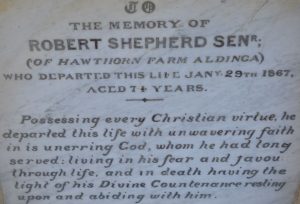 TO
THE MEMORY OF
ROBERT SHEPHERD SENR;
(OF HAWTHORN FARM ALDINGA)
WHO DEPARTED THIS LIFE JANY. 29TH 1867,
AGED 74 YEARS.
Possessing every Christian virtue, he
departed this life with unwavering faith
in is unerring God, whom he had long
served; living in his fear and favou
through life, and in death having the
light of his Divine Countenance resting
upon and abiding with him.